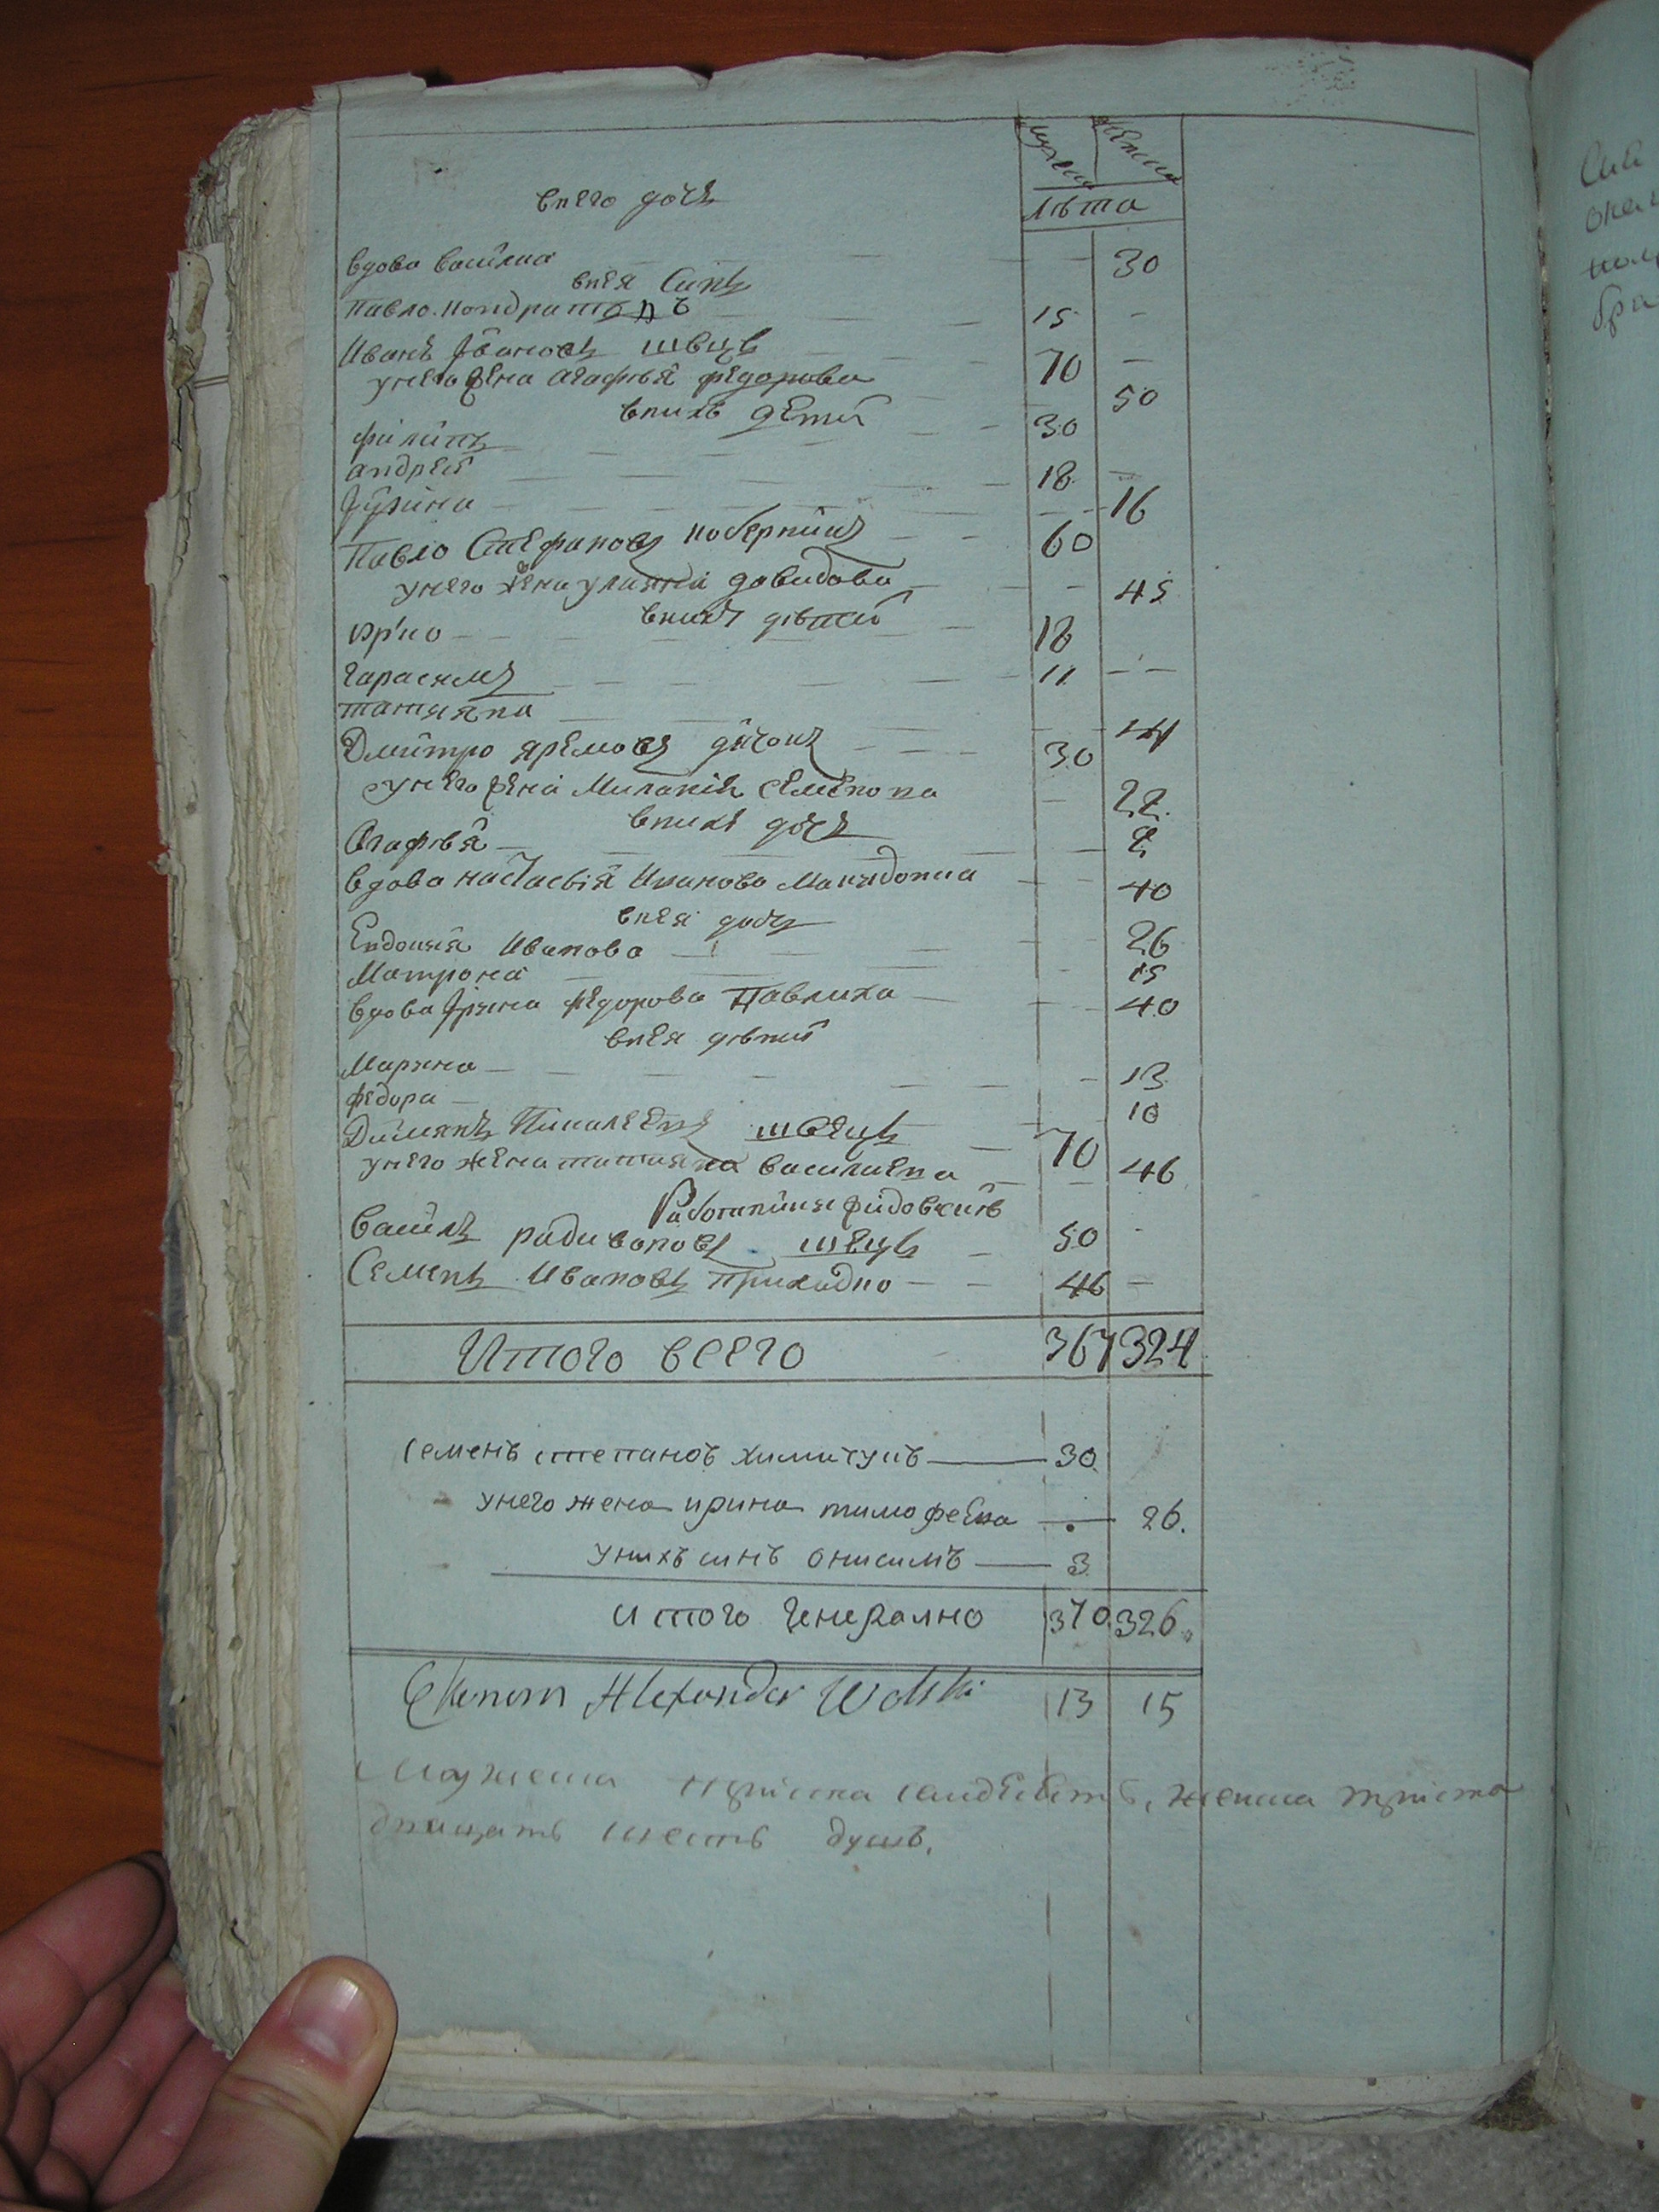 мужеска женска
лѣта
в него дочь
вдова василиа — 30
в нея синъ
павло кондратовъ 15 —
Иванъ Івановъ швецъ 70 —
у него жена агафѣя федорова 50
в нихъ детей
филипъ 30
андрей 18 —
Іулина — 16
Павло Стефановъ 60
у него жена уляна давидова — 45
в нихъ дѣтей
юрко 18
гарасимъ 11 —
татияна 14
Дмитро яремовъ 30
у него жена Миланія семенова — 22.
в нихъ дочь
Агафѣя 2
вдова настасія Иванова — 40
в нея дочь
Евдокия Иванова — 26
Матрона — 15
вдова Ірина федорова Павлиха — 40
в нея дѣтей
Марина — 13
федора 10
швецъ 70
у него жена татияна василиева — 46
василь радивоновъ швецъ 50 —
Семенъ Ивановъ приходко 46 —
Итого всего 367 324
семенъ степановъ химичукъ — 30
у него жена ирина тимофеева — 26.
у нихъ синъ онисимъ — 3
итого генерално 370. 326.
Ekonom Alexander Wolski 13 15
Мужеска триста семдесятъ, женска триста
двацать шесть душъ.